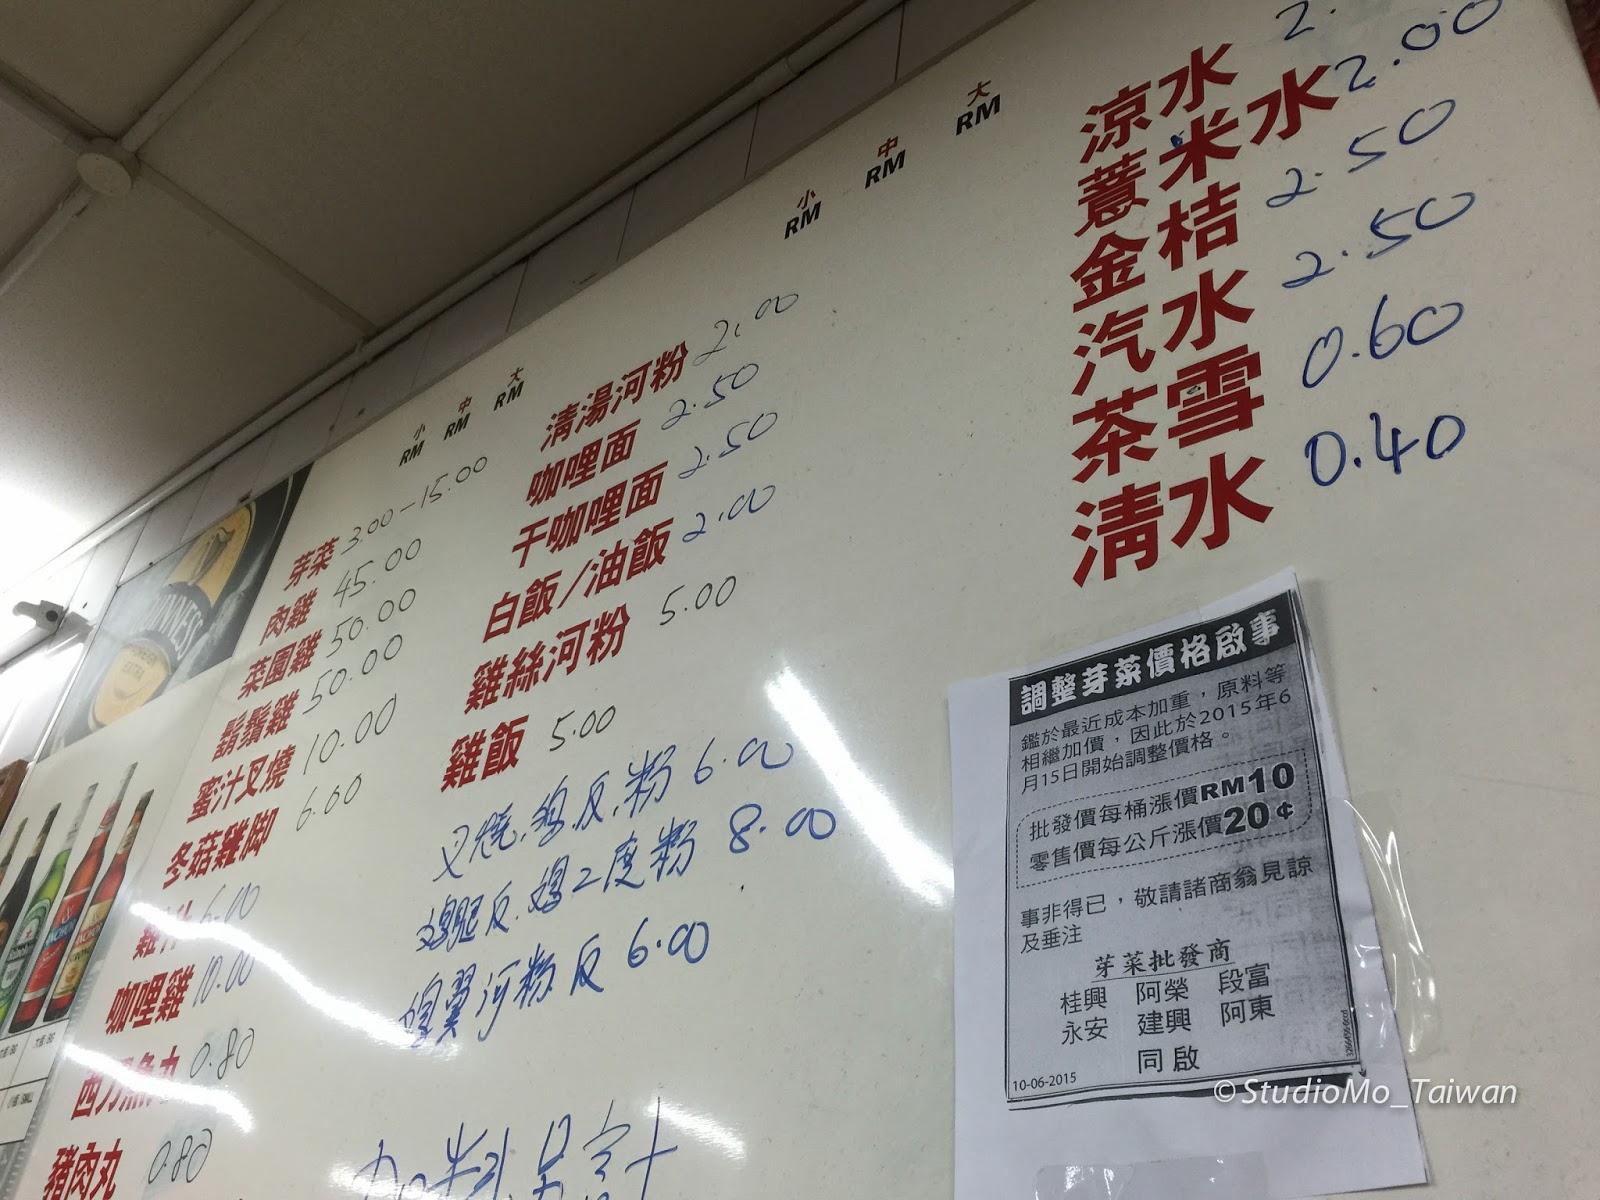 小 中 大
RM RM RM
芽菜 3.00-15.00
肉雞 45.00
菜園雞 50.00
鬍鬚雞 50.00
蜜汁叉燒 10.00
冬菇雞脚 6.00
6.00
咖哩雞 10.00
西刀魚丸 0.80
豬肉丸 0.80
清湯河粉 2.00
咖哩面 2.50
干咖哩面 2.50
白飯/油飯 2.00
雞絲河粉 5.00
雞飯 5.00
粉 6.00
粉 8.00
河粉 6.00
加料另計
小 中 大
RM RM RM
涼水 2.
薏米水 2.00
金桔 2.50
汽水 2.50
茶雪 0.60
清水 0.40
調整芽菜價格啟事
鑑於最近成本加重，原料等
相繼加價，因此於2015年6
月15日開始調整價格。
批發價每桶漲價RM10
零售價每公斤漲價20¢
事非得已，敬請諸商翁見諒
及垂注
芽菜批發商
桂興 阿榮 段富
永安 建興 阿東
同啟
10-06-2015
GUINNESS
EXTRA
© StudioMo_Taiwan